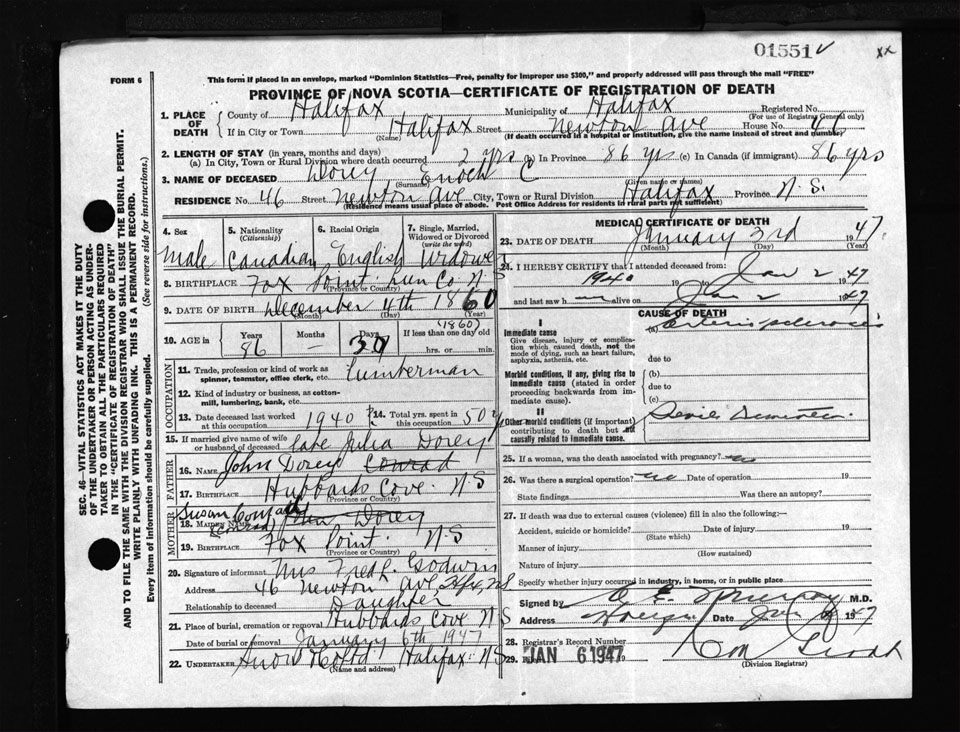 01551 ✓ xx
FORM 6
This form if placed in an envelope, marked "Dominion Statistics—Free, penalty for improper use $300," and properly addressed will pass through the mail "FREE"
PROVINCE OF NOVA SCOTIA—CERTIFICATE OF REGISTRATION OF DEATH
SEC. 46—VITAL STATISTICS ACT MAKES IT THE DUTY
OF THE UNDERTAKER OR PERSON ACTING AS UNDER-
TAKER TO OBTAIN ALL THE PARTICULARS REQUIRED
IN THE "CERTIFICATE OF REGISTRATION OF DEATH"
AND TO FILE THE SAME WITH THE DIVISION REGISTRAR WHO SHALL ISSUE THE BURIAL PERMIT.
WRITE PLAINLY WITH UNFADING INK. THIS IS A PERMANENT RECORD.
Every item of information should be carefully supplied. (See reverse side for instructions.)
1. PLACE OF DEATH County of Halifax Municipality of Halifax Registered No.
(For use of Registrar General only)
If in City or Town Halifax Street Newton Ave House No.
(Name) (If death occurred in a hospital or institution, give the name instead of street and number)
2. LENGTH OF STAY (in years, months and days)
(a) In City, Town or Rural Division where death occurred 2 yrs (b) In Province 86 yrs (c) In Canada (if immigrant) 86 yrs
3. NAME OF DECEASED Dorey Enoch C
(Surname) (Given name or names)
RESIDENCE No. 46 Street Newton Ave City, Town or Rural Division Halifax Province N.S.
(Residence means usual place of abode. Post Office Address for residents in rural parts not sufficient)
4. Sex 5. Nationality (Citizenship) 6. Racial Origin 7. Single, Married, Widowed or Divorced (write the word)
Male Canadian English Widowed
8. BIRTHPLACE Fox Point Lun Co. N.S
(Province or Country)
9. DATE OF BIRTH December 4th 1860
(Month) (Day) (Year)
(1860)
10. AGE in Years Months Days If less than one day old
86 — 30 hrs. or min.
OCCUPATION
11. Trade, profession or kind of work as spinner, teamster, office clerk, etc. Lumberman
12. Kind of industry or business, as cotton-mill, lumbering, bank, etc.
13. Date deceased last worked at this occupation 1940 14. Total yrs. spent in this occupation 50 y
15. If married give name of wife or husband of deceased Late Julia Dorey
FATHER
16. NAME John Dorey Conrad
17. BIRTHPLACE Hubbards Cove N S
(Province or Country)
MOTHER
Susan Conrad
18. MAIDEN NAME (Conrad) Dorey
19. BIRTHPLACE Fox Point. N.S
(Province or Country)
20. Signature of informant Mrs Fred L. Godwin
Address 46 Newton Ave, Hfx, NS
Relationship to deceased Daughter
21. Place of burial, cremation or removal Hubbards Cove N S
Date of burial or removal January 6th 1947
22. UNDERTAKER Snow & Co Ltd Halifax N.S
(Name and address)
MEDICAL CERTIFICATE OF DEATH
23. DATE OF DEATH January 3rd 1947
(Month) (Day) (Year)
24. I HEREBY CERTIFY that I attended deceased from:
1940 19 to Jan 2 1947
and last saw h alive on Jan 2 1947
CAUSE OF DEATH
I
Immediate cause
Give disease, injury or complication which caused death, not the mode of dying, such as heart failure, asphyxia, asthenia, etc.
(a) Arteriosclerosis
due to
Morbid conditions, if any, giving rise to immediate cause (stated in order proceeding backwards from immediate cause).
(b)
due to
(c)
II
Other morbid conditions (if important) contributing to death but not causally related to immediate cause.
Senile Dementia
25. If a woman, was the death associated with pregnancy? no
26. Was there a surgical operation? no Date of operation 19
State findings Was there an autopsy?
27. If death was due to external causes (violence) fill in also the following:
Accident, suicide or homicide? Date of injury 19
(State which)
Manner of injury
(How sustained)
Nature of injury
Specify whether injury occurred in industry, in home, or in public place
Signed by M.D.
Address Date Jan 1947
28. Registrar's Record Number
29. JAN 6 1947 19
(Division Registrar)